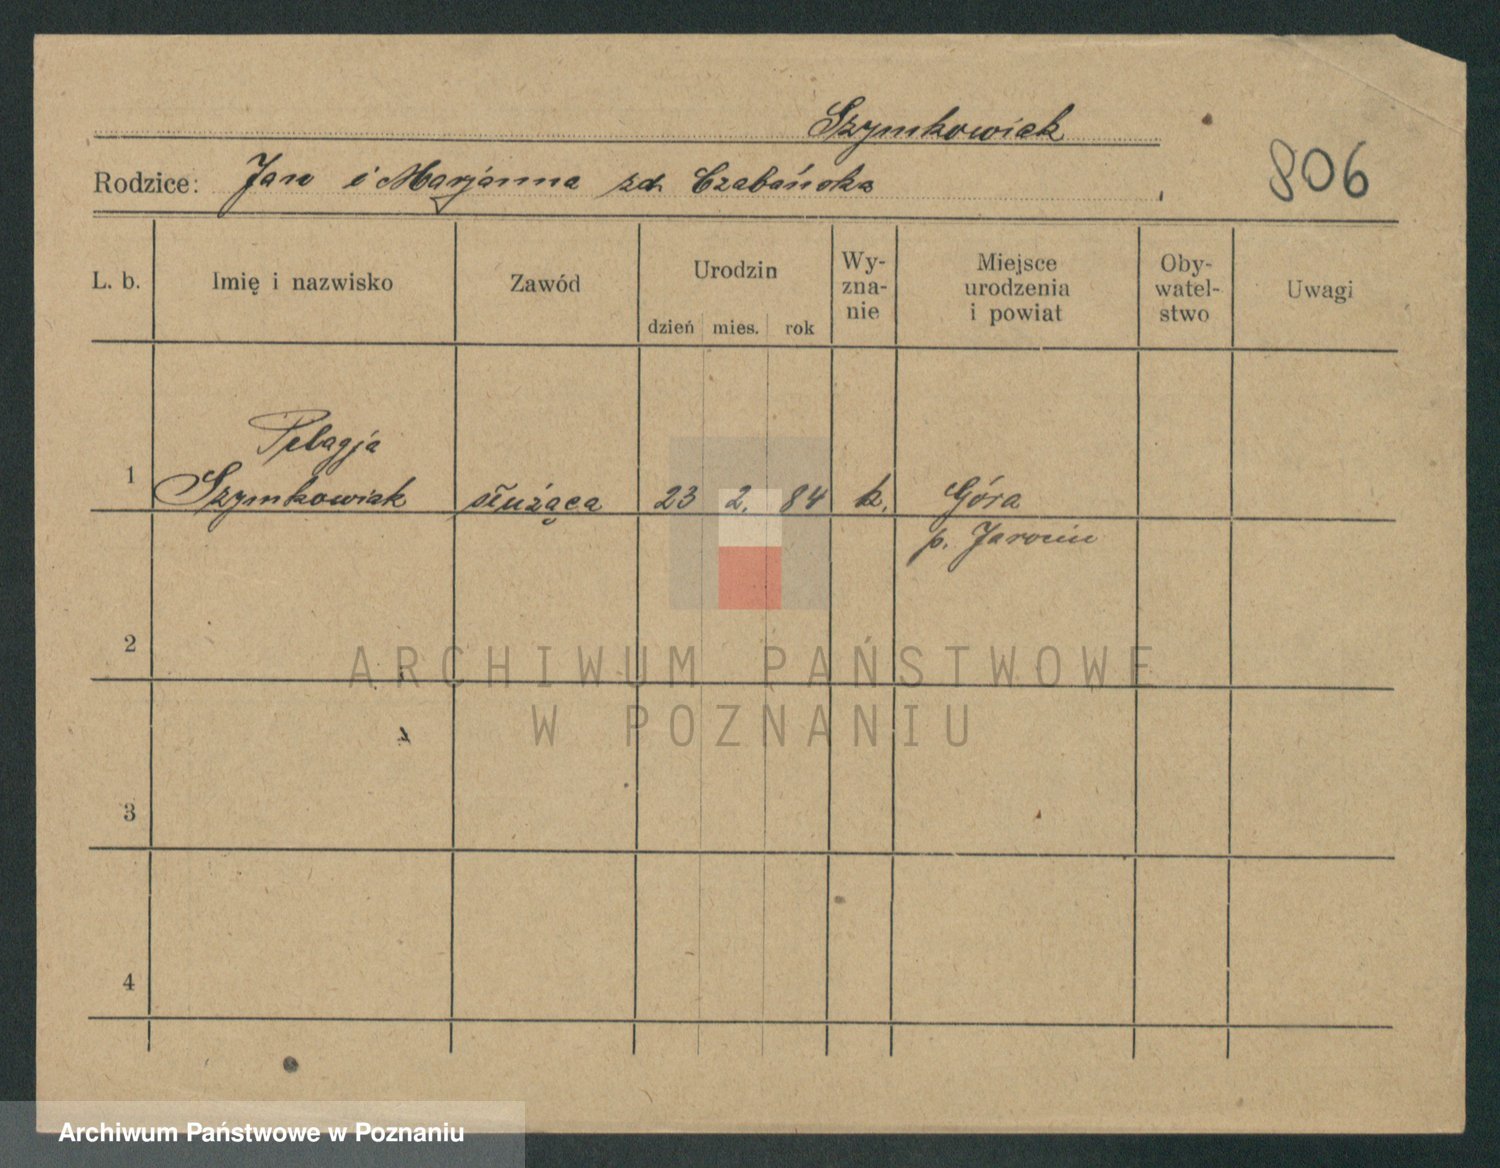 Szymkowiak
806
Rodzice: Jan i Marjanna zd. Czabańska
L. b.
Imię i nazwisko
Zawód
Urodzin
dzień mies. rok
Wy-
zna-
nie
Miejsce
urodzenia
i powiat
Oby-
watel-
stwo
Uwagi
Pelagja
1 Szymkowiak służąca 23 2. 84 k. Góra
p. Jarocin
2
ARCHIWUM PAŃSTWOWE
W POZNANIU
3
4
Archiwum Państwowe w Poznaniu